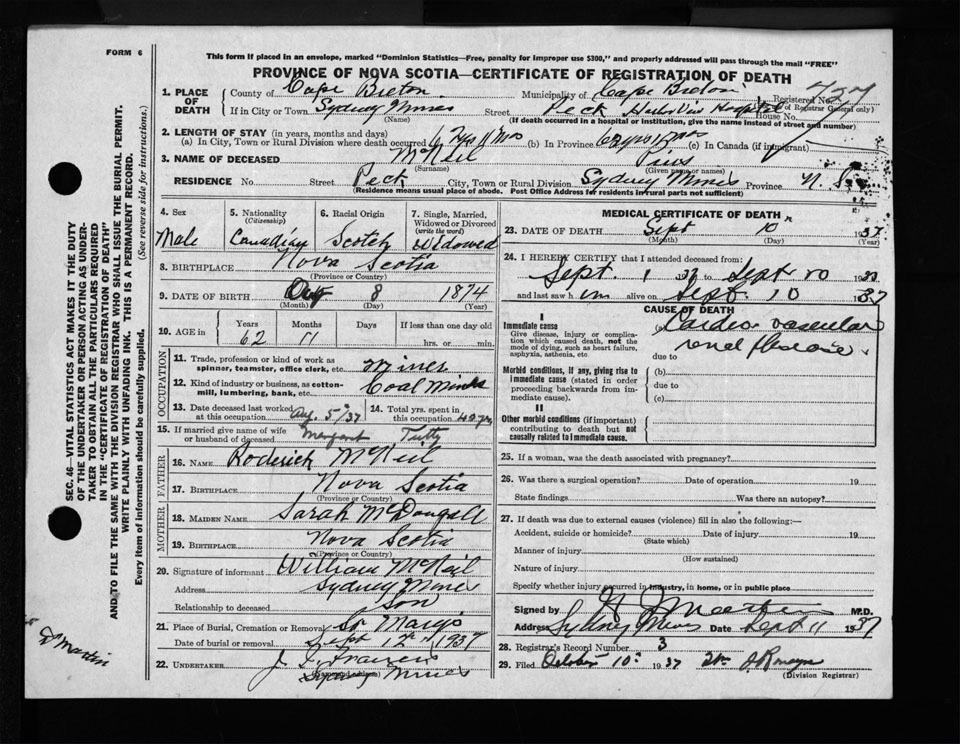 FORM 6
This form if placed in an envelope, marked "Dominion Statistics—Free, penalty for improper use $300," and properly addressed will pass through the mail "FREE"
PROVINCE OF NOVA SCOTIA—CERTIFICATE OF REGISTRATION OF DEATH
1. PLACE OF DEATH County of Cape Breton Municipality of Cape Breton Registered No. 727
If in City or Town Sydney Mines Street Peck Hospital House No.
(Name) (If death occurred in a hospital or institution, give the name instead of street and number)
2. LENGTH OF STAY (in years, months and days)
(a) In City, Town or Rural Division where death occurred (b) In Province (c) In Canada (if immigrant)
3. NAME OF DECEASED McNeil Pius
(Surname) (Given name or names)
RESIDENCE No. Street Peck City, Town or Rural Division Sydney Mines Province N. S.
(Residence means usual place of abode. Post Office Address for residents in rural parts not sufficient)
4. Sex Male
5. Nationality (Citizenship) Canadian
6. Racial Origin Scotch
7. Single, Married, Widowed or Divorced (write the word) Widowed
8. BIRTHPLACE Nova Scotia
(Province or Country)
9. DATE OF BIRTH 8 1874
(Month) (Day) (Year)
10. AGE in Years 62 Months 11 Days If less than one day old hrs. or min.
OCCUPATION
11. Trade, profession or kind of work as spinner, teamster, office clerk, etc. Miner
12. Kind of industry or business, as cotton-mill, lumbering, bank, etc. Coal Mines
13. Date deceased last worked at this occupation Aug. 5th/37
14. Total yrs. spent in this occupation
15. If married give name of wife or husband of deceased Margaret Tutty
FATHER
16. NAME Roderick McNeil
17. BIRTHPLACE Nova Scotia
(Province or Country)
MOTHER
18. MAIDEN NAME Sarah McDougall
19. BIRTHPLACE Nova Scotia
(Province or Country)
20. Signature of informant William McNeil
Address Sydney Mines
Relationship to deceased Son
21. Place of Burial, Cremation or Removal St Marys
Date of burial or removal Sept 12th 1937
22. UNDERTAKER J
Sydney Mines
MEDICAL CERTIFICATE OF DEATH
23. DATE OF DEATH Sept 10 1937
(Month) (Day) (Year)
24. I HEREBY CERTIFY that I attended deceased from:
Sept. 1 37 to Sept 10 1937
and last saw him alive on Sept. 10 1937
CAUSE OF DEATH
I
Immediate cause
Give disease, injury or complication which caused death, not the mode of dying, such as heart failure, asphyxia, asthenia, etc
Cardio vascular
renal disease
due to
Morbid conditions, if any, giving rise to immediate cause (stated in order proceeding backwards from immediate cause).
(b)
due to
(c)
II
Other morbid conditions (if important) contributing to death but not causally related to immediate cause.
25. If a woman, was the death associated with pregnancy?
26. Was there a surgical operation? Date of operation 19
State findings Was there an autopsy?
27. If death was due to external causes (violence) fill in also the following:—
Accident, suicide or homicide? Date of injury 19
(State which)
Manner of injury
(How sustained)
Nature of injury
Specify whether injury occurred in industry, in home, or in public place
Signed by M.D.
Address Sydney Mines Date Sept 11 1937
28. Registrar's Record Number 3
29. Filed October 10th 1937
(Division Registrar)
SEC. 46—VITAL STATISTICS ACT MAKES IT THE DUTY
OF THE UNDERTAKER OR PERSON ACTING AS UNDER-
TAKER TO OBTAIN ALL THE PARTICULARS REQUIRED
IN THE "CERTIFICATE OF REGISTRATION OF DEATH"
AND TO FILE THE SAME WITH THE DIVISION REGISTRAR WHO SHALL ISSUE THE BURIAL PERMIT.
WRITE PLAINLY WITH UNFADING INK. THIS IS A PERMANENT RECORD.
Every item of information should be carefully supplied. (See reverse side for instructions.)
Martin